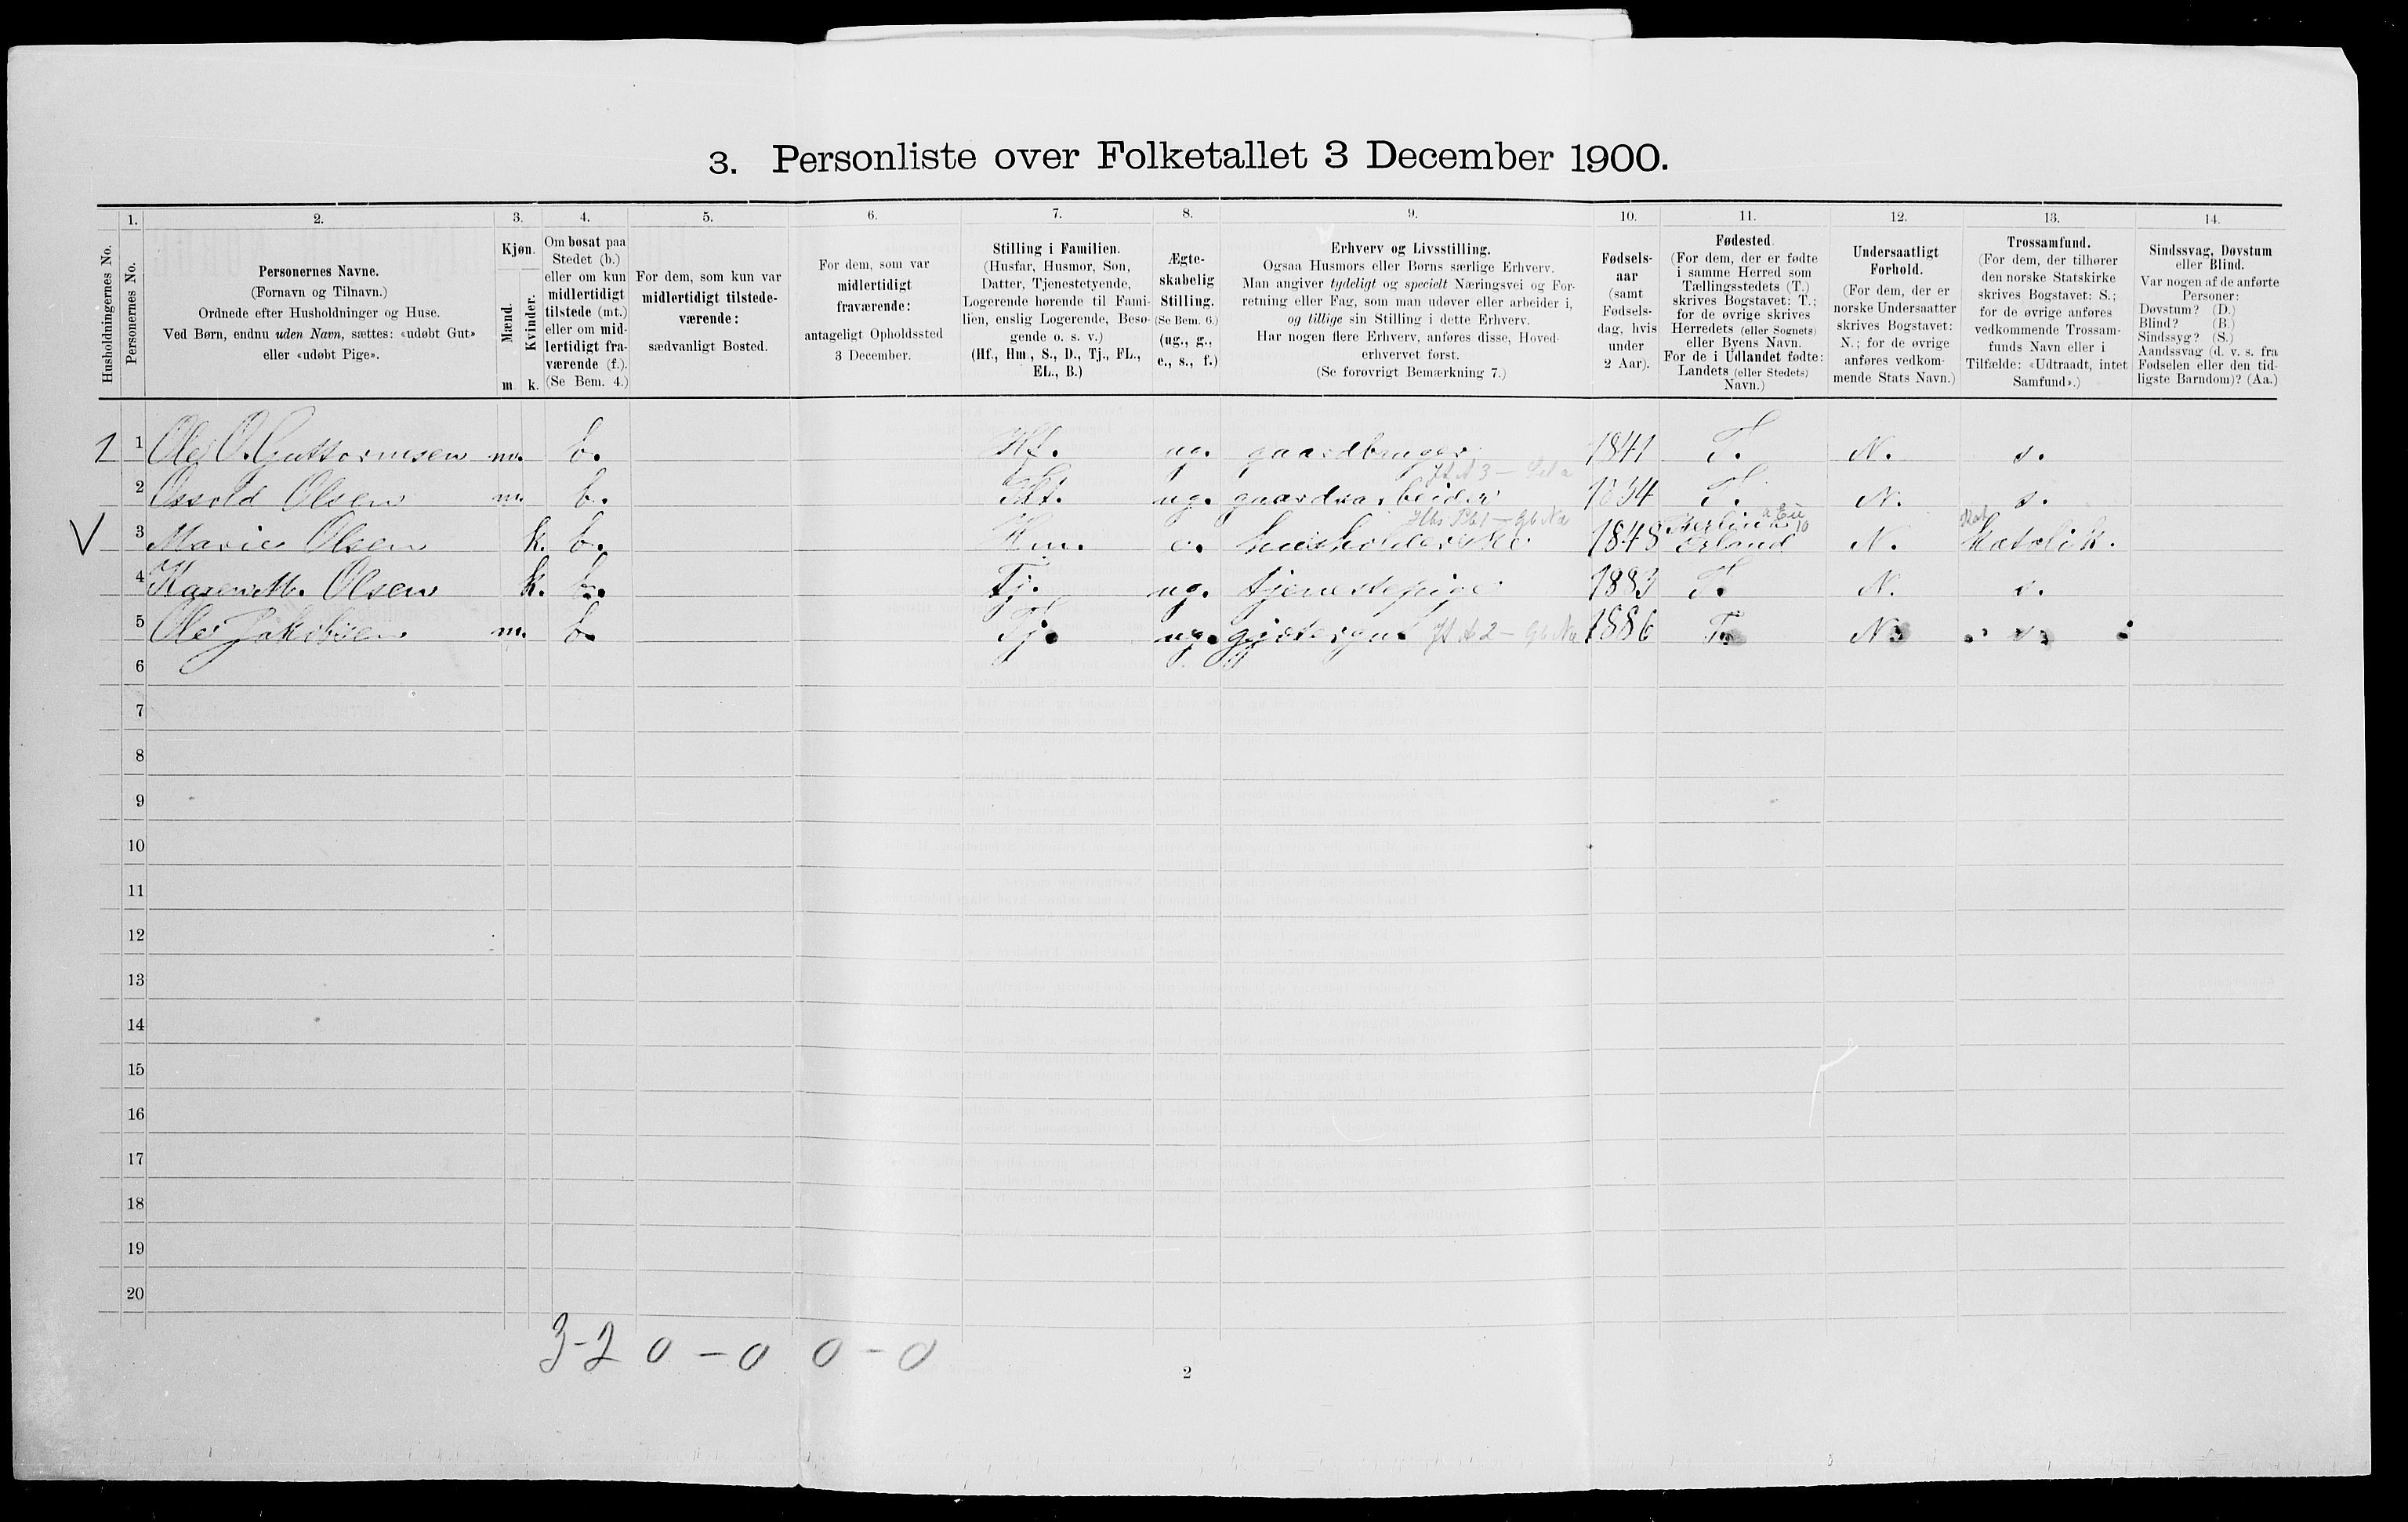 3. Personliste over Folketallet 3 December 1900.
Husholdningernes No.
1.
Personernes No.
2.
Personernes Navne.
(Fornavn og Tilnavn.)
Ordnede efter Husholdninger og Huse.
Ved Børn, endnu uden Navn, sættes: «udøbt Gut»
eller «udøbt Pige».
3.
Kjøn.
Mænd.
Kvinder.
m.
k.
4.
Om bosat paa
Stedet (b.)
eller om kun
midlertidigt
tilstede (mt.)
eller om mid-
lertidigt fra-
værende (f.).
(Se Bem. 4.)
5.
For dem, som kun var
midlertidigt tilstede-
værende:
sædvanligt Bosted.
6.
For dem, som var
midlertidigt
fraværende:
antageligt Opholdssted
3 December.
7.
Stilling i Familien.
(Husfar, Husmor, Søn,
Datter, Tjenestetyende,
Logerende hørende til Fami-
lien, enslig Logerende, Besø-
gende o. s. v.)
(Hf., Hm., S., D., Tj., FL.,
EL., B.)
8.
Ægte-
skabelig
Stilling.
(Se Bem. 6.)
(ug., g.,
e., s., f.)
9.
Erhverv og Livsstilling.
Ogsaa Husmors eller Børns særlige Erhverv.
Man angiver tydeligt og specielt Næringsvei og For-
retning eller Fag, som man udøver eller arbeider i,
og tillige sin Stilling i dette Erhverv.
Har nogen flere Erhverv, anføres disse, Hoved-
erhvervet først.
(Se forøvrigt Bemærkning 7.)
10.
Fødsels-
aar
(samt
Fødsels-
dag, hvis
under
2 Aar).
11.
Fødested.
(For dem, der er fødte
i samme Herred som
Tællingsstedets (T.)
skrives Bogstavet: T.;
for de øvrige skrives
Herredets (eller Sognets)
eller Byens Navn.
For de i Udlandet fødte:
Landets (eller Stedets)
Navn.)
12.
Undersaatligt
Forhold.
(For dem, der er
norske Undersaatter
skrives Bogstavet:
N.; for de øvrige
anføres vedkom-
mende Stats Navn.)
13.
Trossamfund.
(For dem, der tilhører
den norske Statskirke
skrives Bogstavet: S.;
for de øvrige anføres
vedkommende Trossam-
funds Navn eller i
Tilfælde: «Udtraadt, intet
Samfund».)
14.
Sindssvag, Døvstum
eller Blind.
Var nogen af de anførte
Personer:
Døvstum? (D.)
Blind? (B.)
Sindssyg? (S.)
Aandssvag (d. v. s. fra
Fødselen eller den tid-
ligste Barndom)? (Aa.)
1 1 Ole O. Guttormsen m. b. Hf. ug. gaardbruger 1841 T. N. s.
2 Osvold Olsen m. b. ug. gaardsarbeider T. N. s.
V 3 Marie Olsen k. b. Hm. e. husholderske 1848 N. Katolik.
4 Karen M. Olsen k. b. Tj. ug. tjenestepige 1883 T. N. s.
5 Ole Jakobsen m. b. Tj. ug. gjætergut 1886 T. N. s.
6
7
8
9
10
11
12
13
14
15
16
17
18
19
20
3-2 0-0 0-0
2